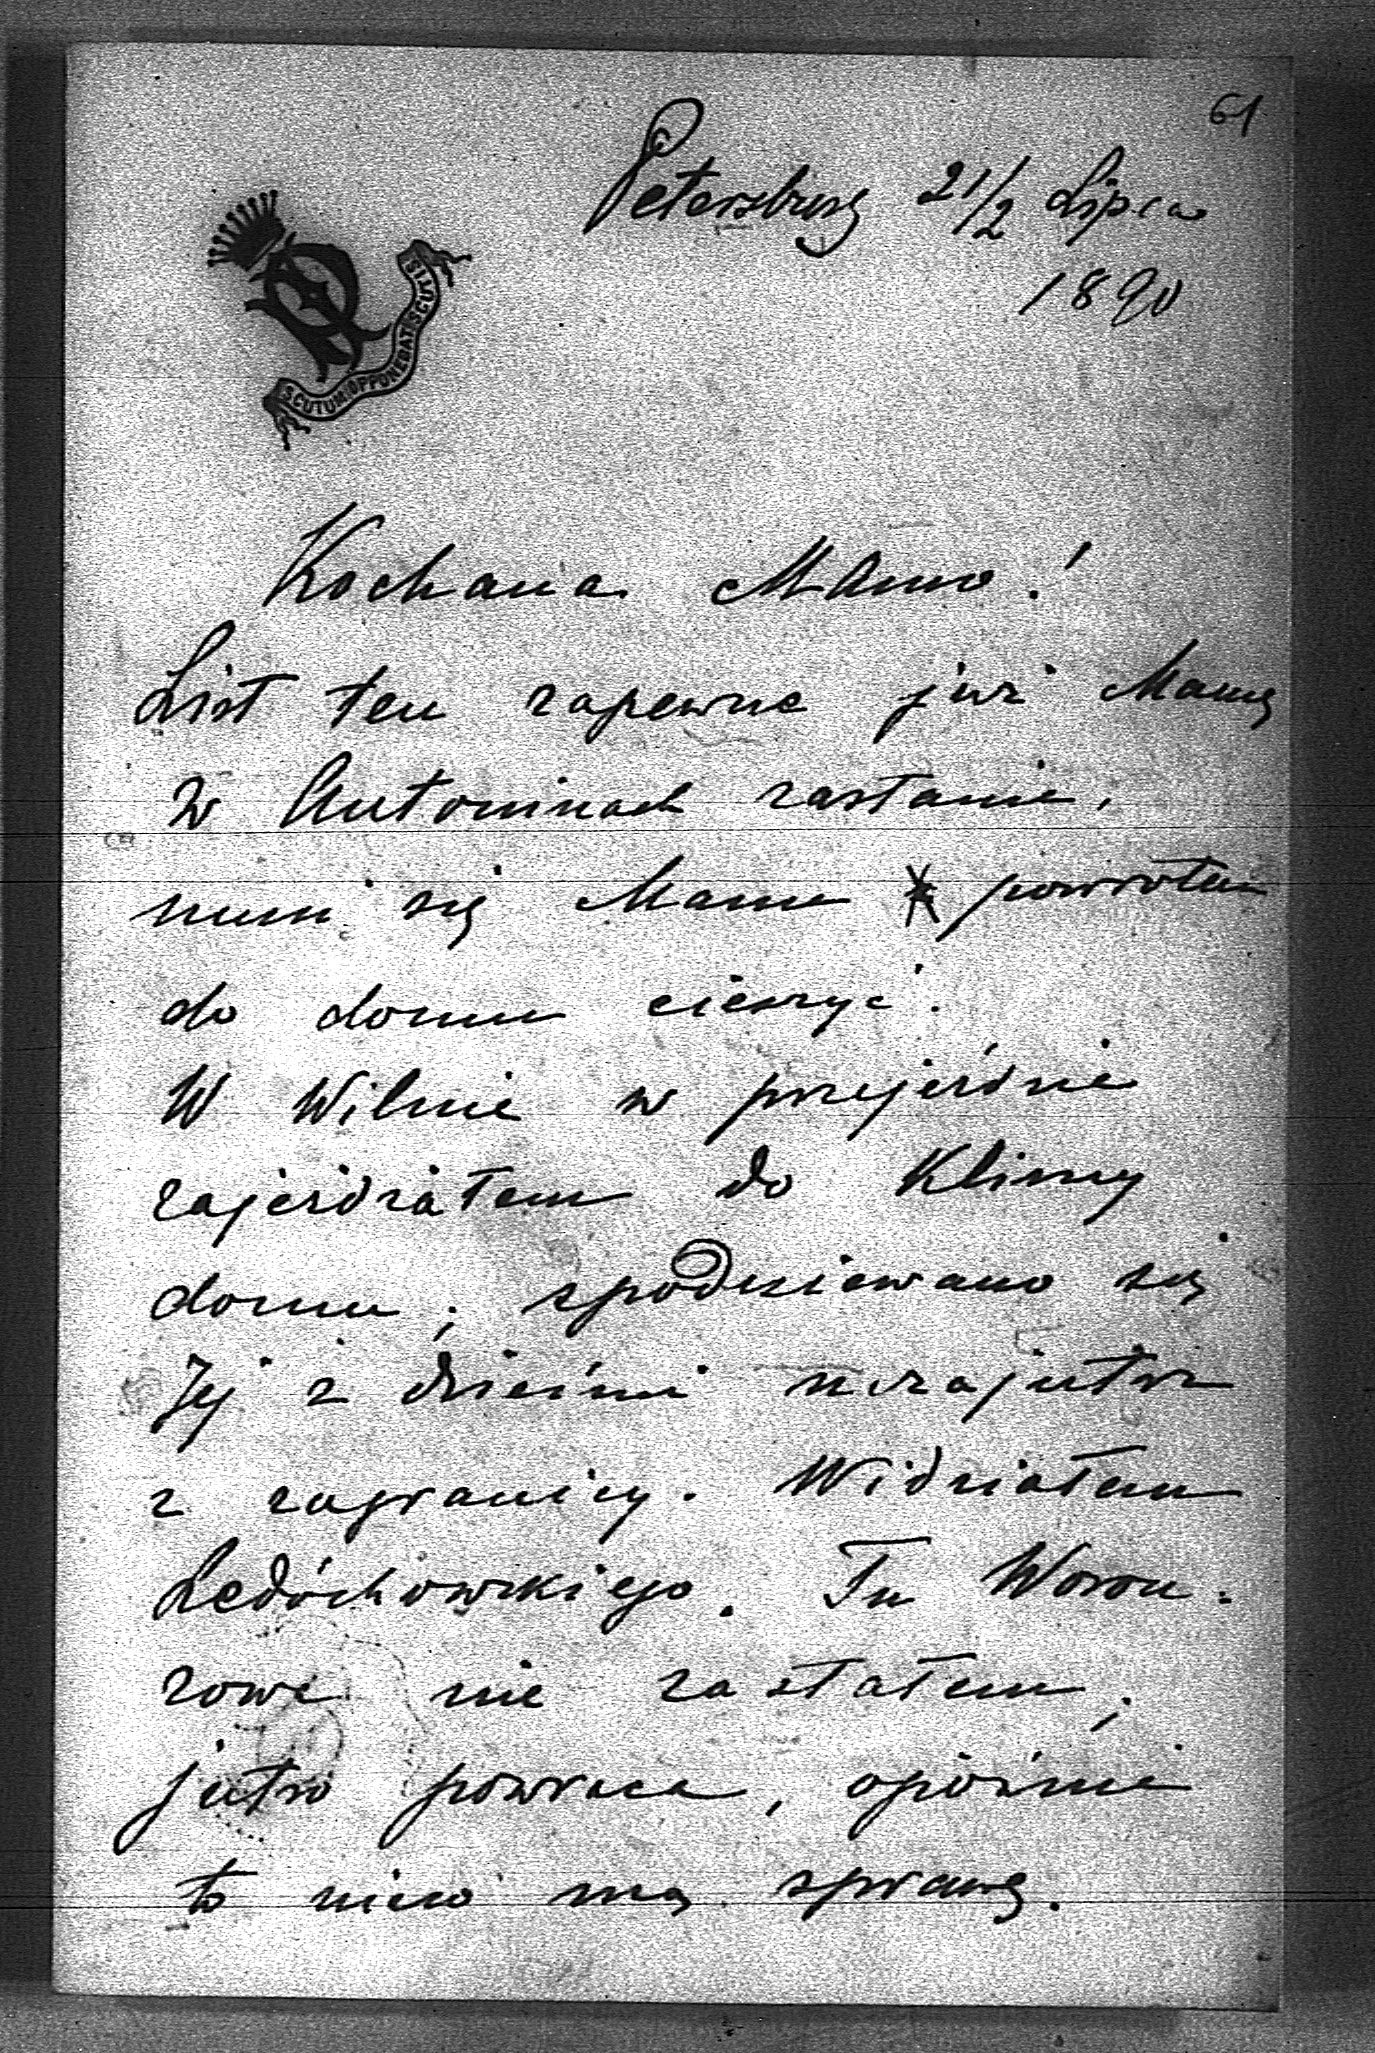 61
Petersburg 21/2 Lipca
1890
SCUTUM OPPONEBAT SCUTIS
Kochana Mamo!
List ten zapewne już Mamę
w Antoninach zastanie,
musi się Mama powrotem
do domu cieszyć.
W Wilnie w przejeździe
zajeżdżałem do Klimy
domu; spodziewano się
Jej z dziećmi nazajutrz
z zagranicy. Widziałem
Ledóchowskiego. Tu Woron:
zowe nie zastałem;
jutro powraca, opóźni
to nieco mą sprawę.